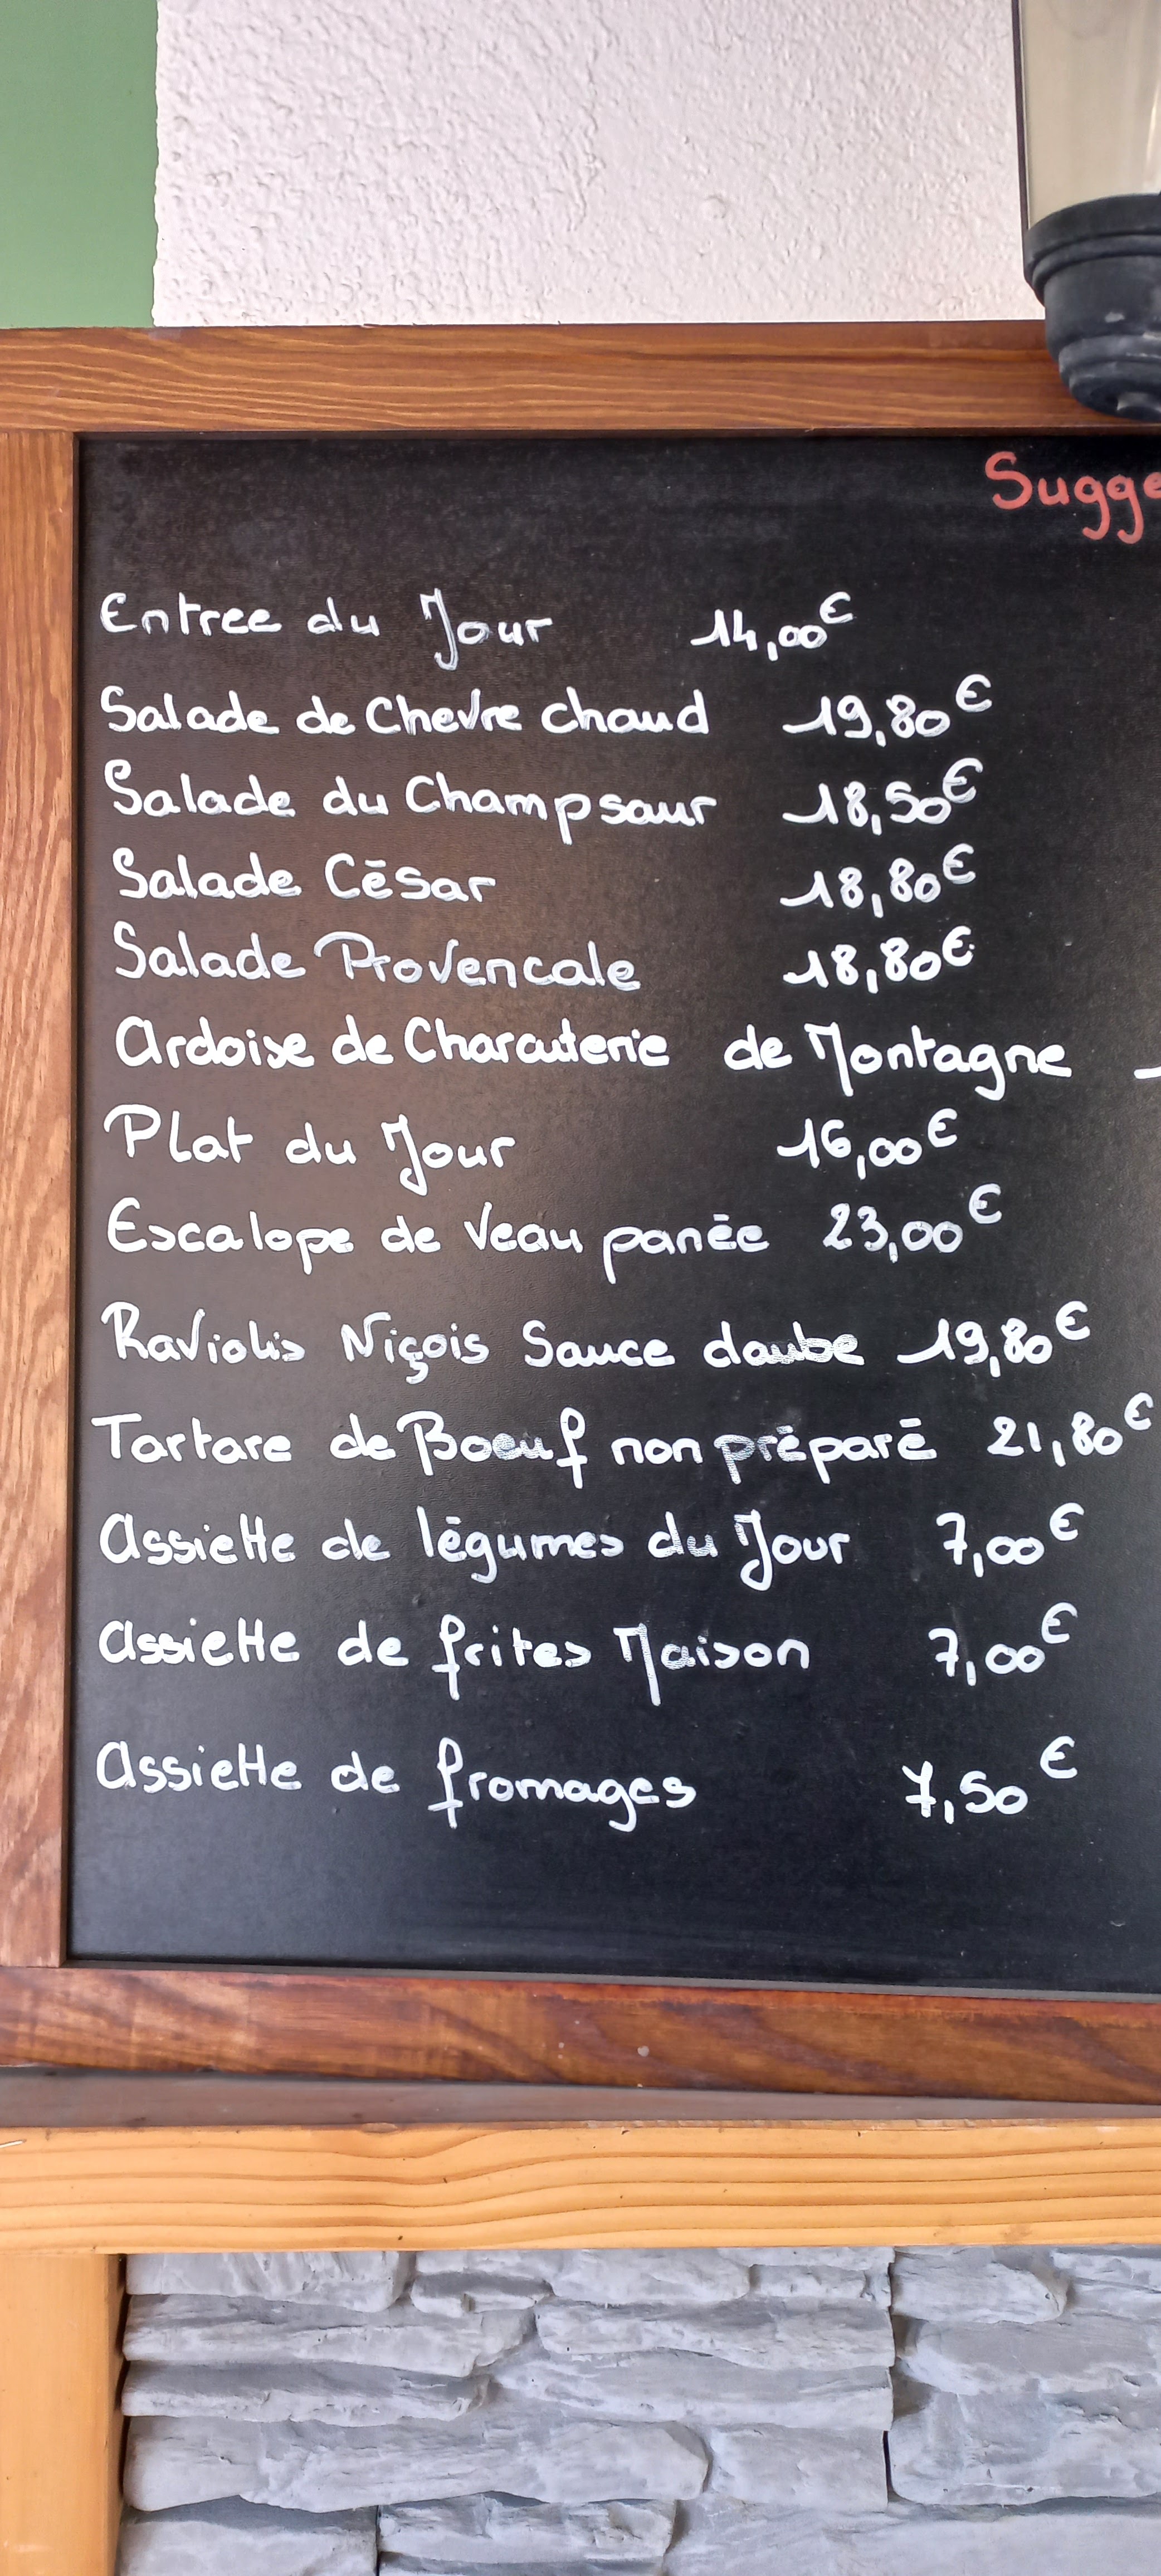 Sugge
Entree du Jour 14,00€
Salade de Chevre chaud 19,80€
Salade du Champsaur 18,50€
Salade César 18,80€
Salade Provencale 18,80€
Ardoise de Charcuterie de Montagne
Plat du Jour 16,00€
Escalope de Veau panée 23,00€
Raviolis Niçois Sauce daube 19,80€
Tartare de Boeuf non préparé 21,80€
Assiette de légumes du Jour 7,00€
Assiette de frites Maison 7,00€
Assiette de fromages 7,50€